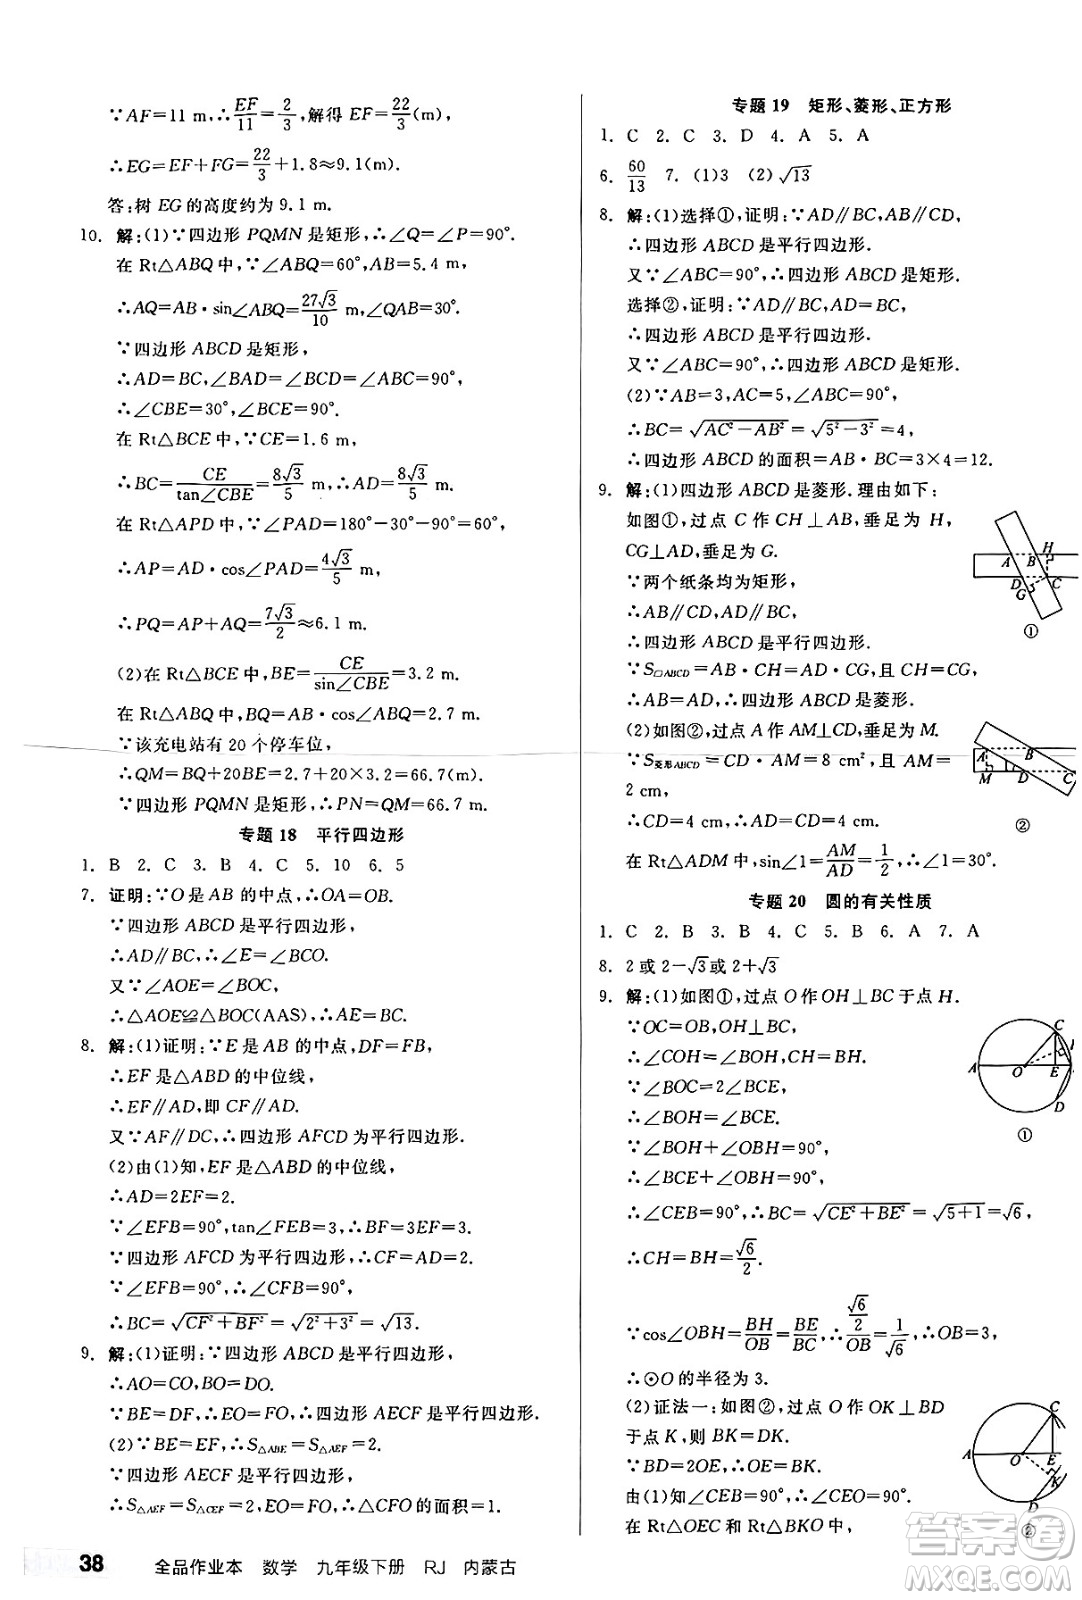 ∵AF=11 m,∴EF/11=2/3,解得 EF=22/3(m),
∴EG=EF+FG=22/3+1.8≈9.1(m).
答:树 EG 的高度约为 9.1 m.
10. 解:(1)∵四边形 PQMN 是矩形,∴∠Q=∠P=90°.
在 Rt△ABQ 中,∵∠ABQ=60°,AB=5.4 m,
∴AQ=AB·sin∠ABQ=27√3/10 m,∴∠QAB=30°.
∵四边形 ABCD 是矩形,
∴AD=BC,∠BAD=∠BCD=∠ABC=90°,
∴∠CBE=30°,∠BCE=90°.
在 Rt△BCE 中,∵CE=1.6 m,
∴BC=CE/tan∠CBE=8√3/5 m,∴AD=8√3/5 m.
在 Rt△APD 中,∵∠PAD=180°-30°-90°=60°,
∴AP=AD·cos∠PAD=4√3/5 m,
∴PQ=AP+AQ=7√3/2≈6.1(m).
(2)在 Rt△BCE 中,BE=CE/sin∠CBE=3.2 m.
在 Rt△ABQ 中,BQ=AB·cos∠ABQ=2.7 m.
∵该充电站有 20 个停车位,
∴QM=BQ+20BE=2.7+20×3.2=66.7(m).
∵四边形 PQMN 是矩形,∴PN=QM=66.7 m.
专题 18 平行四边形
1. B 2. C 3. B 4. C 5. 10 6. 5
7. 证明:∵O 是 AB 的中点,∴OA=OB.
∵四边形 ABCD 是平行四边形,
∴AD∥BC,∴∠AEO=∠BCO.
又∵∠AOE=∠BOC,
∴△AOE≌△BOC(AAS),∴AE=BC.
8. 解:(1)证明:∵E 是 AB 的中点,DF=FB,
∴EF 是△ABD 的中位线,
∴EF∥AD,即 CF∥AD.
又∵AF∥DC,∴四边形 AFCD 是平行四边形.
(2)由(1)知,EF 是△ABD 的中位线,
∴AD=2EF=2.
∵∠EFB=90°,tan∠FEB=3,∴BF=3EF=3.
∵四边形 AFCD 为平行四边形,∴CF=AD=2.
∵∠EFB=90°,∴∠CFB=90°,
∴BC=√(CF²+BF²)=√(2²+3²)=√13.
9. 解:(1)证明:∵四边形 ABCD 是平行四边形,
∴AO=CO,BO=DO.
∵BE=DF,∴EO=FO,∴四边形 AECF 是平行四边形.
(2)∵BE=EF,∴S△ABE=S△AEF=2.
∵四边形 AECF 是平行四边形,
∴S△AEF=S△CEF=2,EO=FO,∴△CFO 的面积=1.
38 全品作业本 数学 九年级下册 RJ 内蒙古
专题 19 矩形、菱形、正方形
1. C 2. C 3. D 4. A 5. A
6. 60/13 7. (1)3 (2)√13
8. 解:(1)选择①,证明:∵AD∥BC,AB∥CD,
∴四边形 ABCD 是平行四边形.
又∵∠ABC=90°,∴四边形 ABCD 是矩形.
选择②,证明:∵AD∥BC,AD=BC,
∴四边形 ABCD 是平行四边形.
又∵∠ABC=90°,∴四边形 ABCD 是矩形.
(2)∵AB=3,AC=5,∠ABC=90°,
∴BC=√(AC²-AB²)=√(5²-3²)=4,
∴四边形 ABCD 的面积=AB·BC=3×4=12.
9. 解:(1)四边形 ABCD 是菱形.理由如下:
如图①,过点 C 作 CH⊥AB,垂足为 H,
CG⊥AD,垂足为 G.
∵两个纸条均为矩形,
∴AB∥CD,AD∥BC,
∴四边形 ABCD 是平行四边形.
∵S▱ABCD=AB·CH=AD·CG,且 CH=CG,
∴AB=AD,∴四边形 ABCD 是菱形.
(2)如图②,过点 A 作 AM⊥CD,垂足为 M.
∵S菱形ABCD=CD·AM=8 cm²,AM=
2 cm,
∴CD=4 cm,∴AD=CD=4 cm.
在 Rt△ADM 中,sin∠1=AM/AD=1/2,∴∠1=30°.
A B H
D C
G
①
A B
M D C
②
专题 20 圆的有关性质
1. C 2. B 3. B 4. C 5. B 6. A 7. A
8. 2 或 2-√3 或 2+√3
9. 解:(1)如图①,过点 O 作 OH⊥BC 于点 H.
∵OC=OB,OH⊥BC,
∴∠COH=∠BOH,CH=BH.
∵∠BOC=2∠BCE,
∴∠BOH=∠BCE.
∵∠BOH+∠OBH=90°,
∴∠BCE+∠OBH=90°,
∴∠CEB=90°,∴BC=√(CE²+BE²)=√(5+1)=√6,
∴CH=BH=√6/2.
∵cos∠OBH=BH/OB=BE/BC,∴(√6/2)/OB=1/√6,∴OB=3,
∴⊙O 的半径为 3.
(2)证法一:如图②,过点 O 作 OK⊥BD
于点 K,则 BK=DK.
∵BD=2OE,∴OE=BK.
由(1)知∠CEB=90°,∴∠CEO=90°.
在 Rt△OEC 和 Rt△BKO 中,
A O E C
D
①
A O E C
K
D
②
答案圈